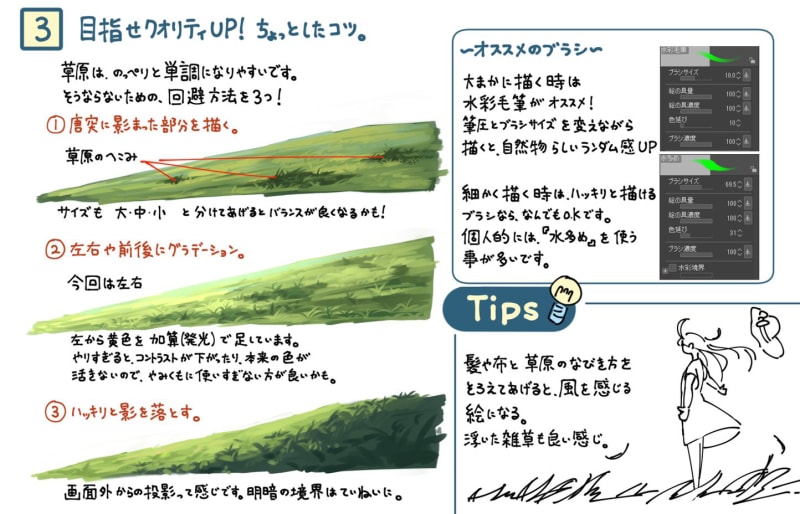 3 目指せクオリティUP! ちょっとしたコツ。
草原は、のっぺりと単調になりやすいです。
そうならないための、回避方法を3つ!
①唐突に影まった部分を描く。
草原のへこみ
サイズも 大・中・小 と分けてあげるとバランスが良くなるかも!
②左右や前後にグラデーション。
今回は左右
左から黄色を加算(発光)で足しています。
やりすぎると、コントラストが下がったり、本来の色が
活きないので、やみくもに使いすぎない方が良いかも。
③ハッキリと影を落とす。
画面外からの投影って感じです。明暗の境界はていねいに。
〜オススメのブラシ〜
大まかに描く時は
水彩毛筆がオススメ!
筆圧とブラシサイズを変えながら
描くと、自然物らしいランダム感UP
細かく描く時は、ハッキリと描ける
ブラシなら、なんでもokです。
個人的には、『水多め』を使う
事が多いです。
水彩毛筆
ブラシサイズ 10.0
絵の具量 100
絵の具濃度 100
色延び 10
ブラシ濃度 100
水多め
ブラシサイズ
絵の具量 100
絵の具濃度 100
色延び 31
ブラシ濃度 100
水彩境界
Tips
髪や布と草原のなびき方を
そろえてあげると、風を感じる
絵になる。
浮いた雑草も良い感じ。